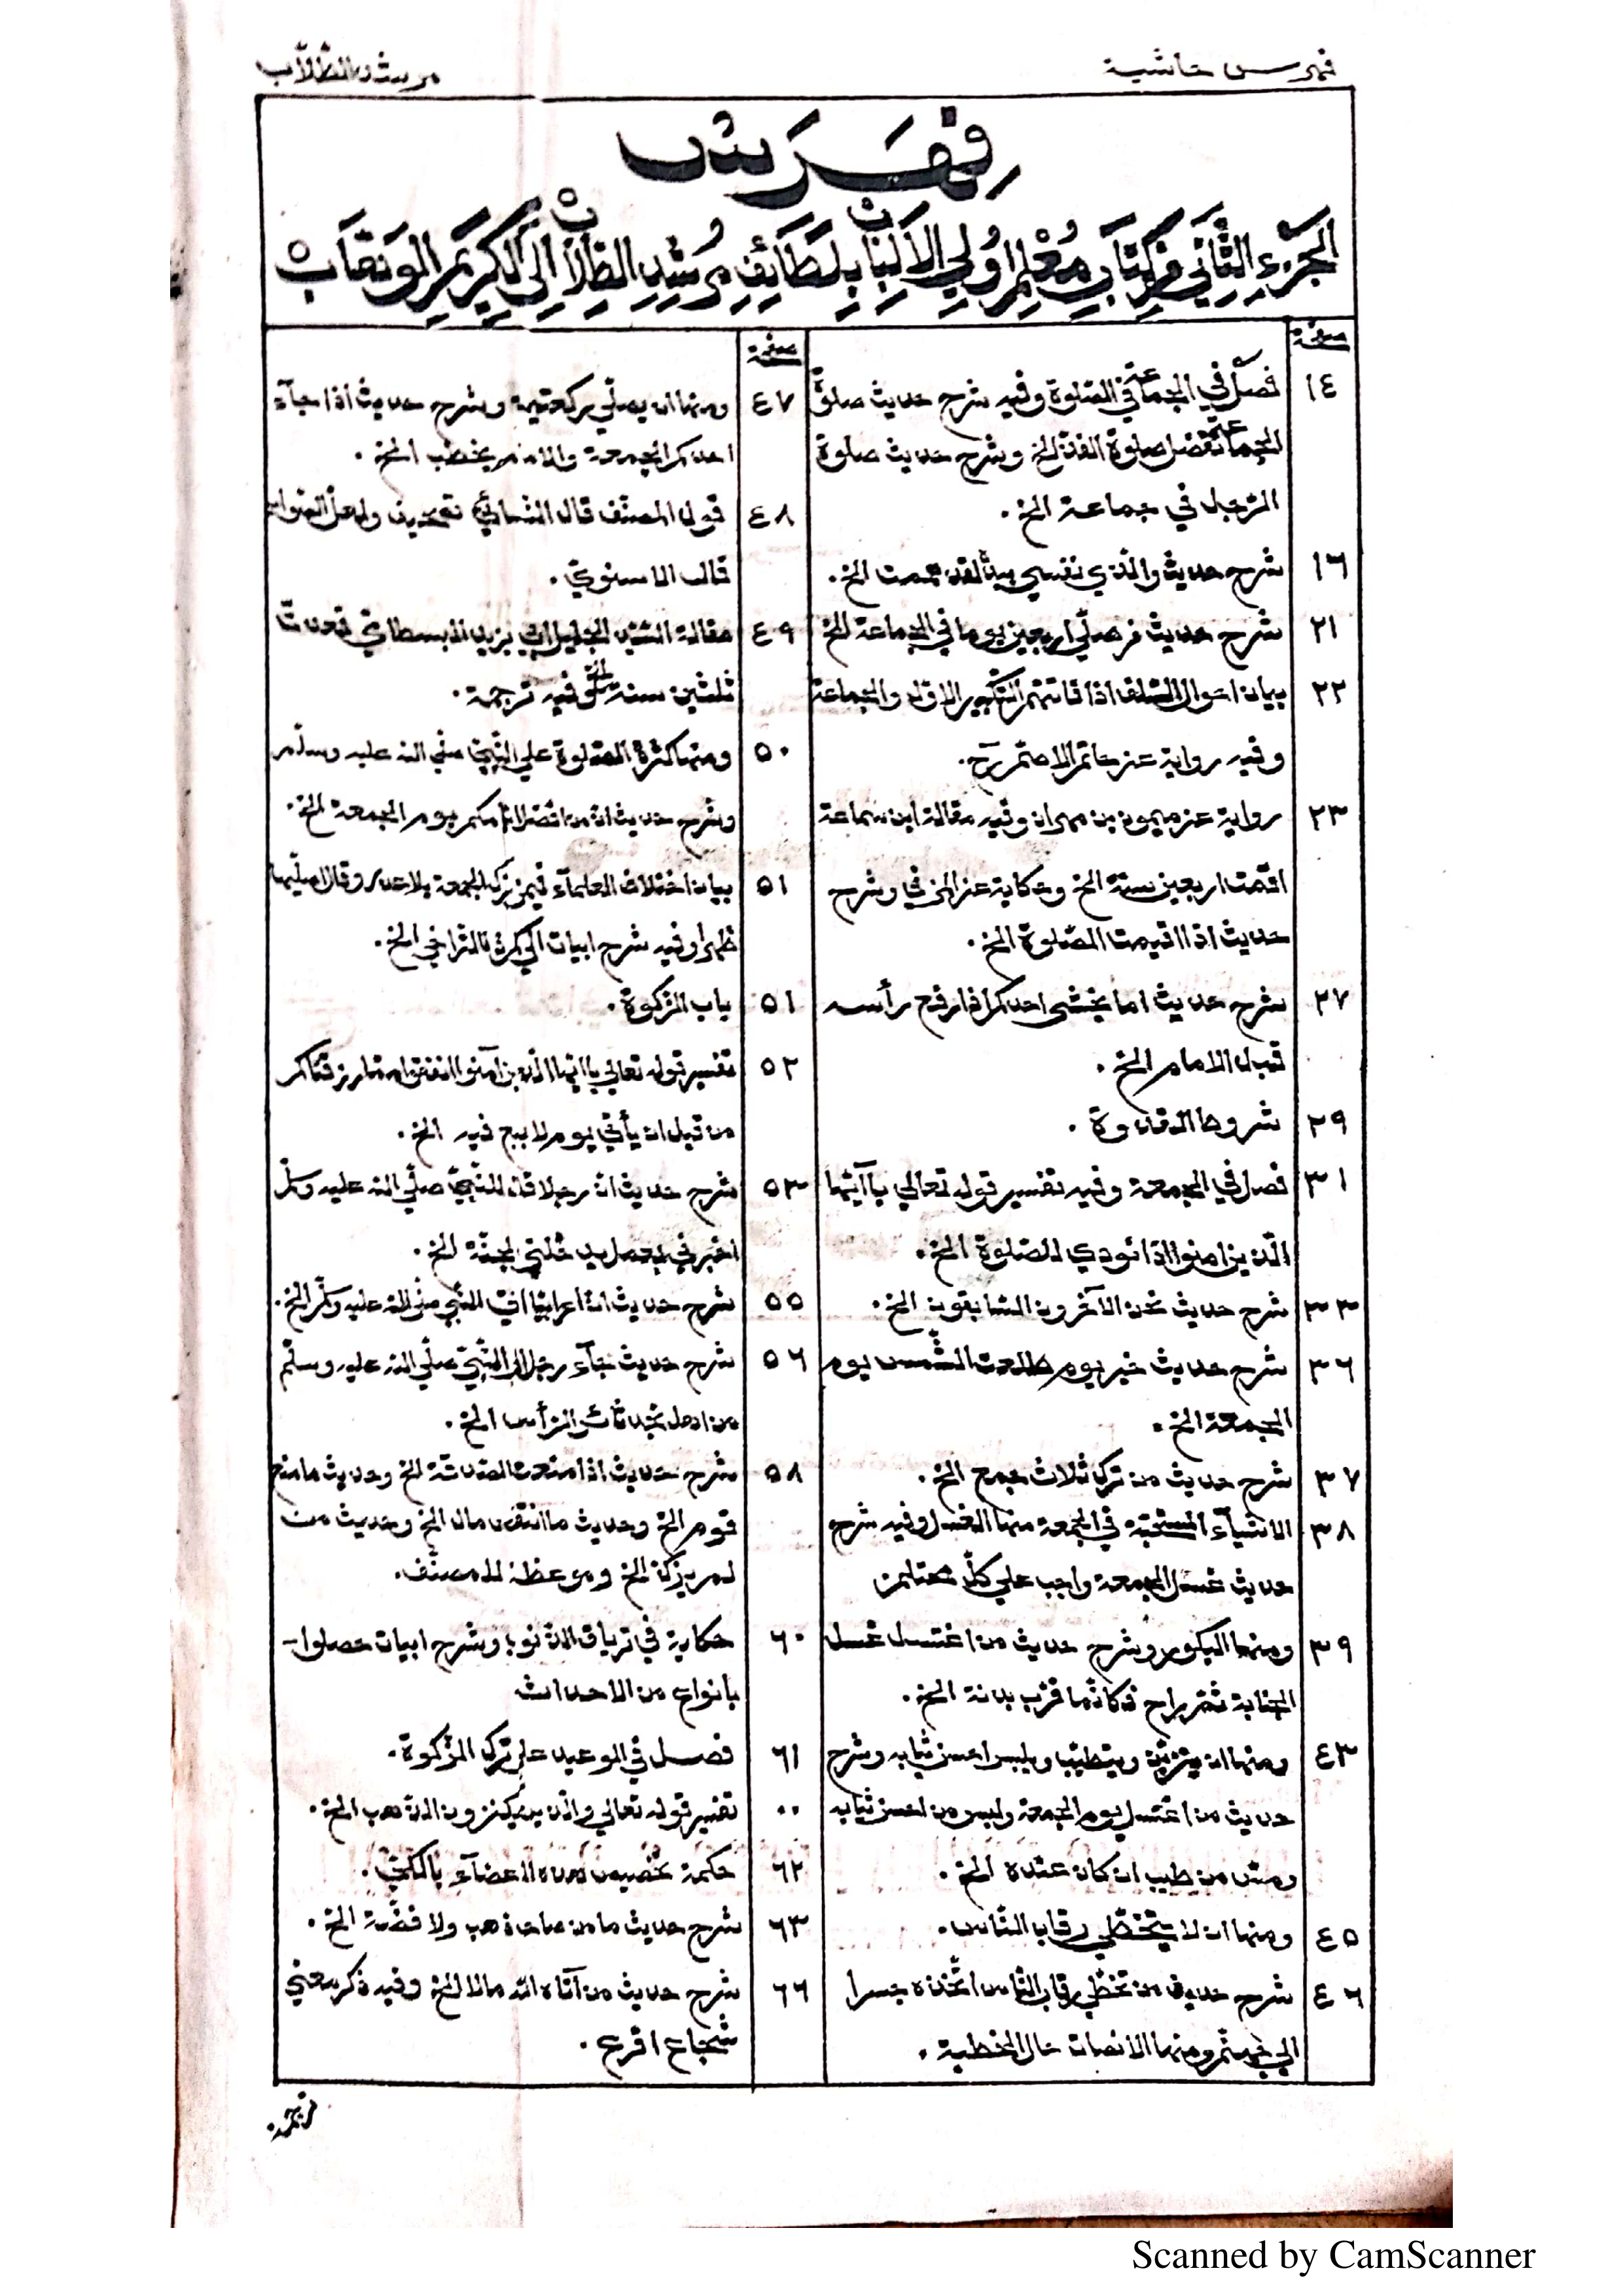 فهرس حاشية
مرشد الطلاب
فهرست
الجزء الثاني من كتاب معلم اولي الالباب لطائف مرشد الطلاب الى الكريم الوهاب
صفحة
١٤ فصل في الجماعة في الصلوة وفيه شرح حديث صلوة
الجماعة تفضل صلوة الفذ الخ وشرح حديث صلوة
الرّجل في جماعة الخ.
١٦ شرح حديث والّذي نفسي بيده لقد هممت الخ.
٢١ شرح حديث من صلّى اربعين يوما في الجماعة الخ
٢٢ بيان احوال السّلف اذا فاتتهم التكبير الاول والجماعة
وفيه رواية عن حاتم الاصمّ رح.
٢٣ رواية عن ميمون بن مهران وفيه مقالة ابن سماعة
اقمت اربعين سنة الخ وحكاية عن المزني وشرح
حديث اذا اقيمت الصّلوة الخ.
٢٧ شرح حديث اما يخشى احدكم اذا رفع رأسه
قبل الامام الخ.
٢٩ شروط القدوة.
٣١ فصل في الجمعة وفيه تفسير قوله تعالى يا آيّها
الّذين امنوا اذا نودي للصّلوة الخ.
٣٣ شرح حديث نحن الآخرون السّابقون الخ.
٣٦ شرح حديث خير يوم طلعت الشّمس يوم
الجمعة الخ.
٣٧ شرح حديث من ترك ثلاث جمع الخ.
٣٨ الاشيآء المستحبّة في الجمعة منها الغسل وفيه شرح
حديث غسل الجمعة واجب على كلّ محتلم
٣٩ ومنها البكور وشرح حديث من اغتسل غسل
الجنابة ثمّ راح فكانّما قرّب بدنة الخ.
٤٣ ومنها ان يتزيّن ويتطيّب ويلبس احسن ثيابه وشرح
حديث من اغتسل يوم الجمعة ولبس من احسن ثيابه
ومسّ من طيب ان كان عنده الخ.
٤٥ ومنها ان لا يتخطّى رقاب النّاس.
٤٦ شرح حديث من تخطّى رقاب النّاس اتّخذه جسرا
الى جهنّم ومنها الانصات حال الخطبة.
صفحة
٤٧ ومنها ان يصلّي ركعتين وشرح حديث اذا جآء
احدكم الجمعة والامام يخطب الخ.
٤٨ قول المصنّف قال النّسائيّ تحريف ولعلّ الصّواب
قال الاسنويّ.
٤٩ مقالة الشّيخ الجليل ابي يزيد البسطامي قعدت
ثلثين سنة الخ وفيه ترجمة.
٥٠ ومنها كثرة الصّلوة على النّبيّ صلّى الله عليه وسلّم
وشرح حديث ان من افضل ايّامكم يوم الجمعة الخ.
٥١ بيان اختلاف العلمآء فيمن ترك الجمعة بلا عذر وقال اصلّيها
ظهرا وفيه شرح ابيات الخ.
٥١ باب الزّكوة.
٥٢ تفسير قوله تعالى يا ايّها الّذين آمنوا انفقوا ممّا رزقناكم
من قبل ان يأتي يوم لا بيع فيه الخ.
٥٣ شرح حديث انّ رجلا قال للنّبيّ صلّى الله عليه وسلّم
اخبرني بعمل يدخلني الجنّة الخ.
٥٥ شرح حديث انّ اعرابيّا اتى النّبي صلى الله عليه وسلّم الخ.
٥٦ شرح حديث جآء رجل الى النّبيّ صلّى الله عليه وسلّم
من اهل نجد ثائر الرّأس الخ.
٥٨ شرح حديث اذا منعت الصّدقة الخ وحديث ما منع
قوم الخ وحديث ما انتقص مال الخ وحديث من
لم يزكّ الخ وموعظة للمصنّف.
٦٠ حكاية في ترياق الذّنوب وشرح ابيات حصلوا
بانواع من الاحداث
٦١ فصل في الوعيد على ترك الزّكوة.
٠٠ تفسير قوله تعالى والّذين يكنزون الذّهب الخ.
٦٢ حكمة تخصيص هذه الاعضآء بالكيّ.
٦٣ شرح حديث ما من صاحب ذهب ولا فضّة الخ.
٦٦ شرح حديث من آتاه الله مالا الخ وفيه ذكر معنى
شجاع اقرع.
Scanned by CamScanner